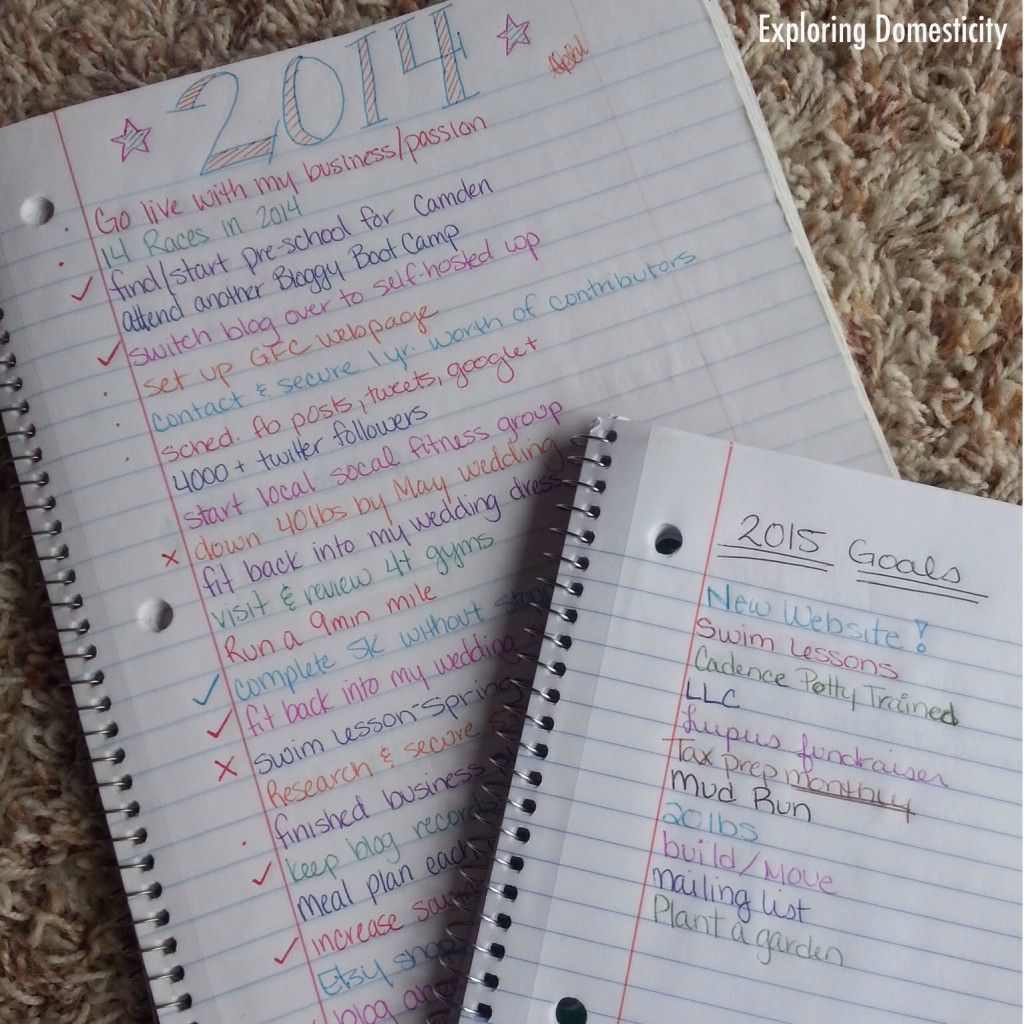 Exploring Domesticity
2014
Go live with my business/passion
14 Races in 2014
find/start pre-school for Camden
attend another Bloggy Boot Camp
switch blog over to self-hosted wp
set up GFC webpage
contact & secure 1 yr. worth of contributors
sched. fb posts, tweets, google+
4000+ twitter followers
start local social fitness group
down 40lbs by May wedding
fit back into my wedding dress
visit & review 4+ gyms
Run a 9min mile
complete 5K without
fit back into my wedding
swim lesson-spring
Research & secure
finished business
keep blog records
meal plan each
increase
Etsy shop
blog
2015 Goals
New Website!
Swim Lessons
Cadence Potty Trained
LLC
Lupus fundraiser
Tax prep monthly
Mud Run
20lbs
build/move
mailing list
Plant a garden